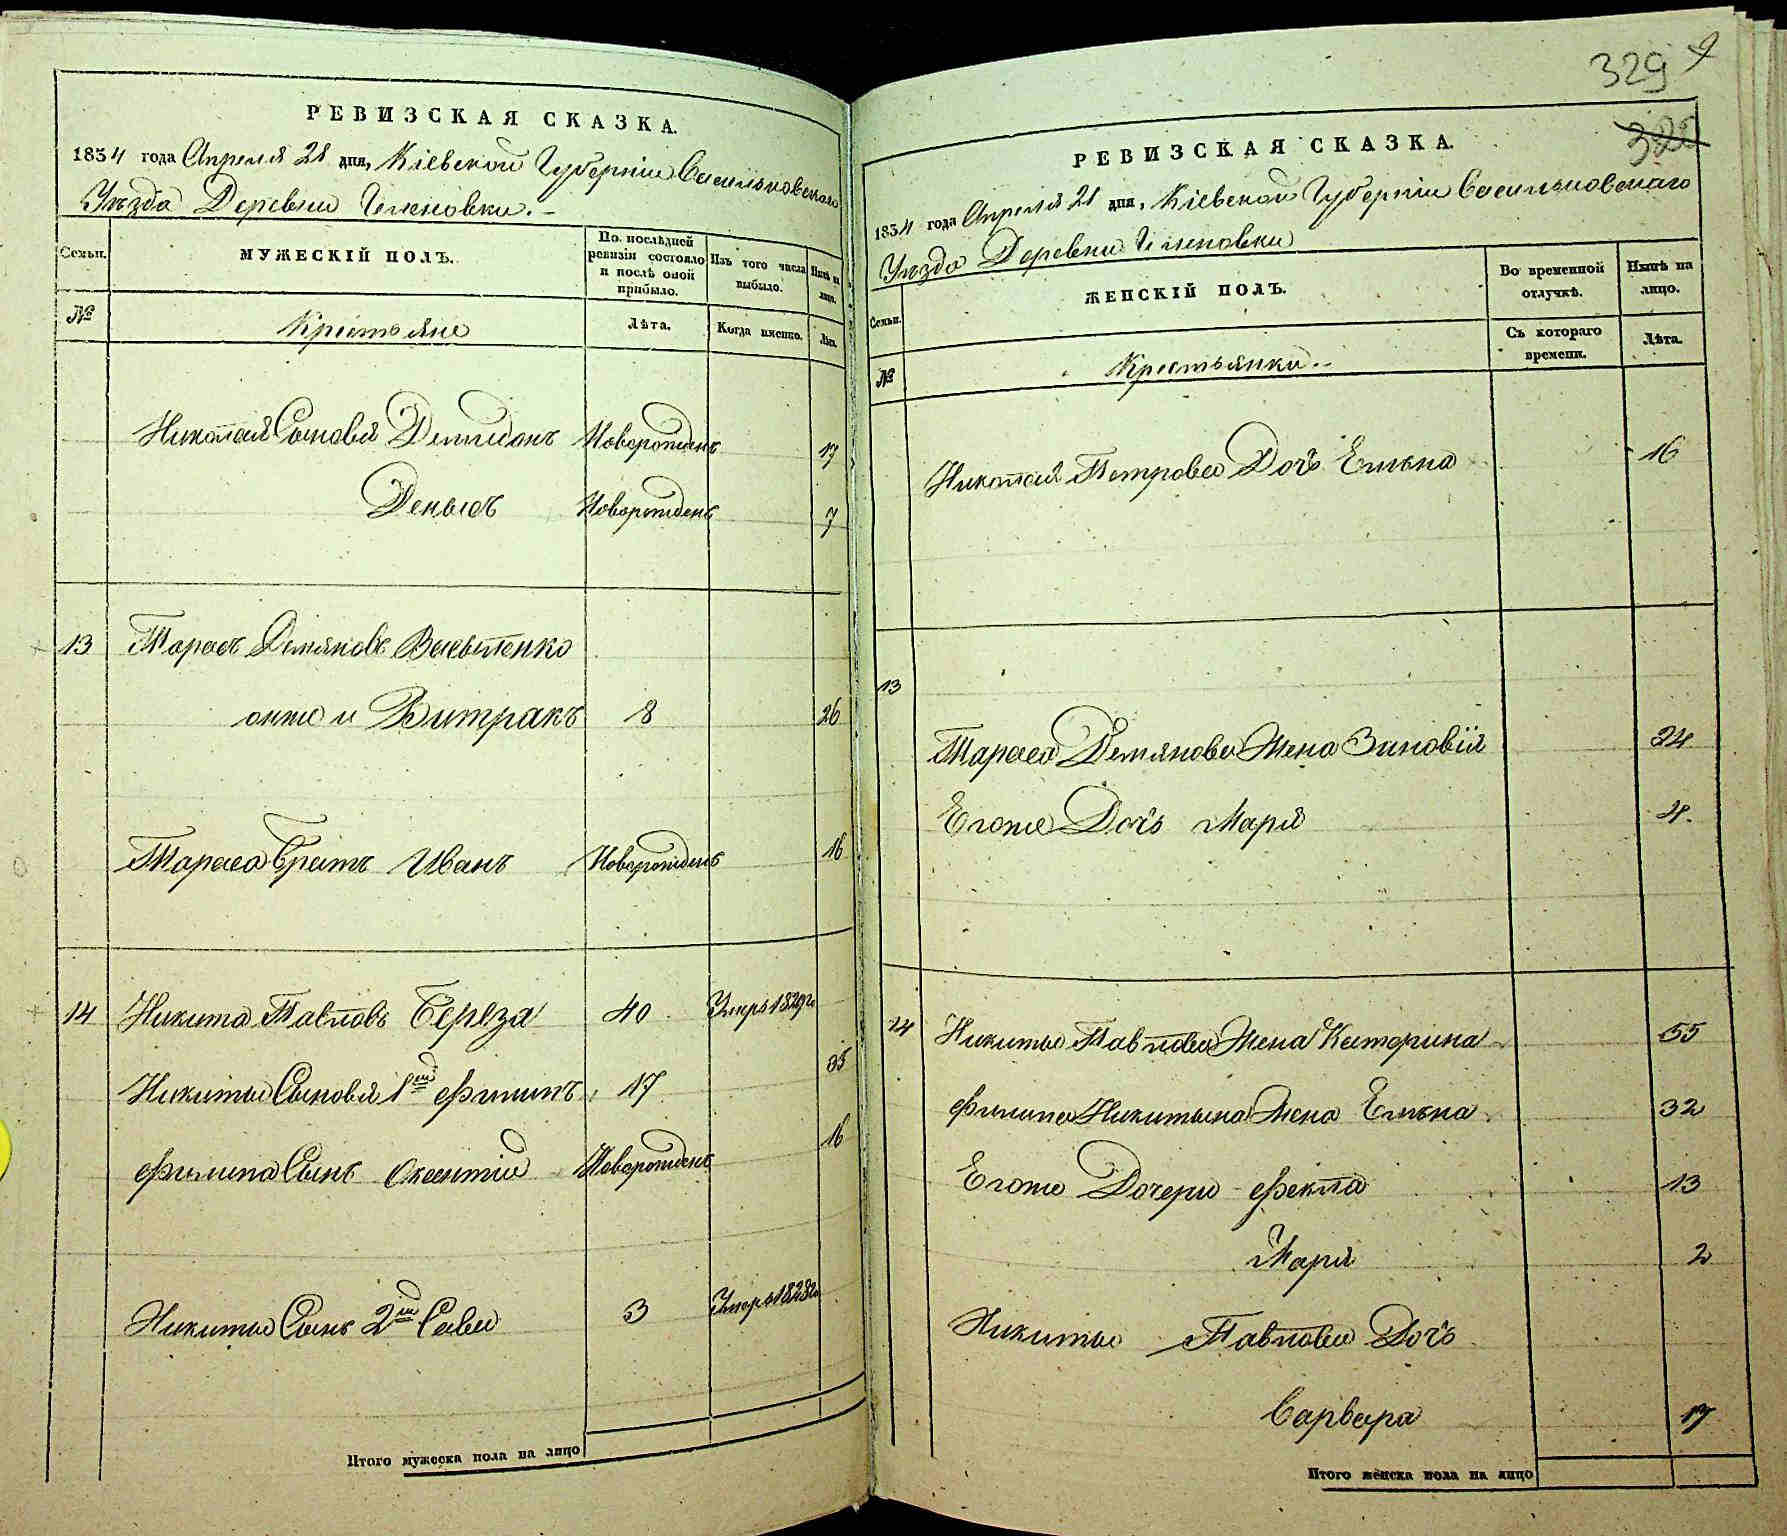 РЕВИЗСКАЯ СКАЗКА.
1834 года Апреля 21 дня, Кіевской Губерніи Васильковскаго
Уезда Деревни
Семьи.
МУЖЕСКІЙ ПОЛЪ.
По послѣдней ревизіи состояло и послѣ оной прибыло.
Изъ того числа выбыло.
Нынѣ на лицо.
№
Крестьяне
Лѣта.
Когда именно.
Лѣта.
Николая Сыновья Демидонъ Новорожденъ 17
Денысъ Новорожденъ 7
13 Тарасъ Демяновъ
онже и Витракъ 8 26
Тараса Братъ Иванъ Новорожденъ 16
14 Никита Павловъ Береза 40 Умеръ 1829го
Никиты Сыновья 1й Филипъ 17 35
Филипа Сынъ Оксентій Новорожденъ 16
Никиты Сынъ 2й Сава 3 Умеръ
Итого мужеска пола на лицо
329
РЕВИЗСКАЯ СКАЗКА.
1834 года Апреля 21 дня, Кіевской Губерніи Васильковскаго
Уезда Деревни
Семьи.
ЖЕНСКІЙ ПОЛЪ.
Во временной отлучкѣ.
Нынѣ на лицо.
№
Крестьянки
Съ котораго времени.
Лѣта.
Николая Петрова Дочь Елена 16
13
Тараса Демянова Жена Зиновія 24
Егоже Дочь Маря 4
14 Никиты Павлова Жена Катерина 55
Филипа Никитына Жена Елена 32
Егоже Дочери Фекла 13
Маря 2
Никиты Павлова Дочь
Варвара 17
Итого женска пола на лицо